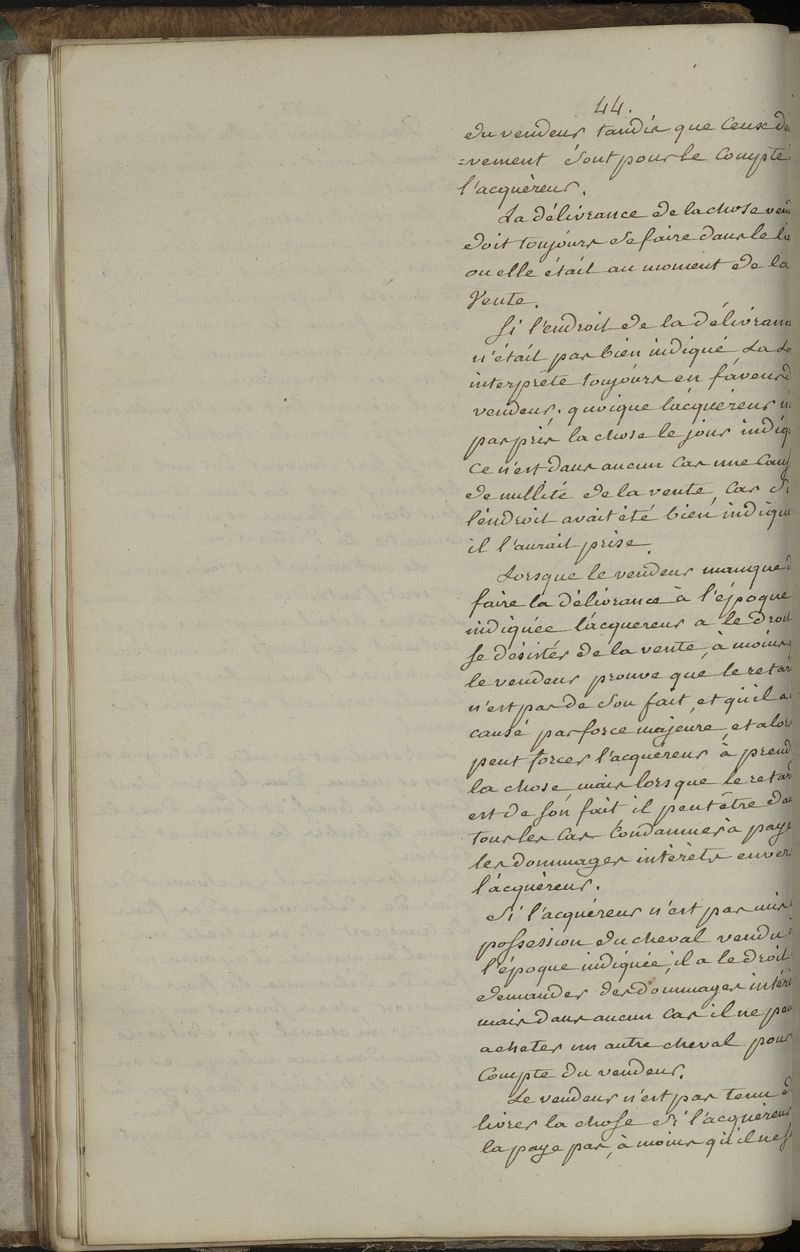 44.
du vendeur tandis que ceux d
=vement sont pour le compte
l'acquéreur.
La délivrance de la chose ven
doit toujours se faire dans le li
ou elle était au moment de la
Vente.
Si l'endroit de la délivran
n'était pas bien indiqué la Lo
interprête toujours en faveur d
vendeur. quoique lacquéreur n
pas pris la chose le jour indiq
ce n'est dans aucun cas une cau
de nullité de la vente, car si
l'endroit avait été bien indiqu
il l'aurait prise.
Lorsque le vendeur manque d
faire la délivrance à l'époque
indiquée lacquereur a le droit
se désister de la vente, à moins q
le vendeur prouve que le retar
n'est pas de son fait, et qu'il a
causé par force majeure, et alors
peut forcer l'acquéreur à prend
la chose, mais lorsque le retar
est de son fait il peut être da
tous les cas condamner à paye
les dommages intérêts enver
l'acquéreur.
Si l'acquéreur n'est pas mis
possession du cheval vendu
l'époque indiquée, il a le droit
demander des dommages intérê
mais dans aucun cas il ne peu
acheter un autre cheval pour
compte du vendeur.
Le vendeur n'est pas tenu d
livrer la chose si l'acquéreur
la paye pas, à moins qu'il ne s